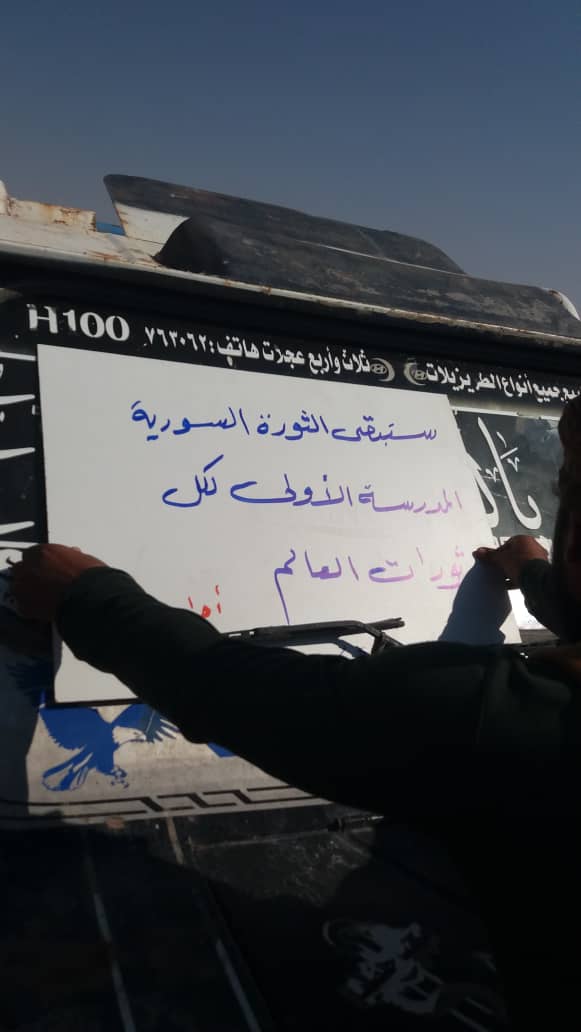 H100
بيع جميع أنواع الطريزيلات ثلاث وأربع عجزت هاتف: ٧٦٣٠٦٢
ستبقى الثورة السورية
المدرسة الأولى لكل
ثورات العالم